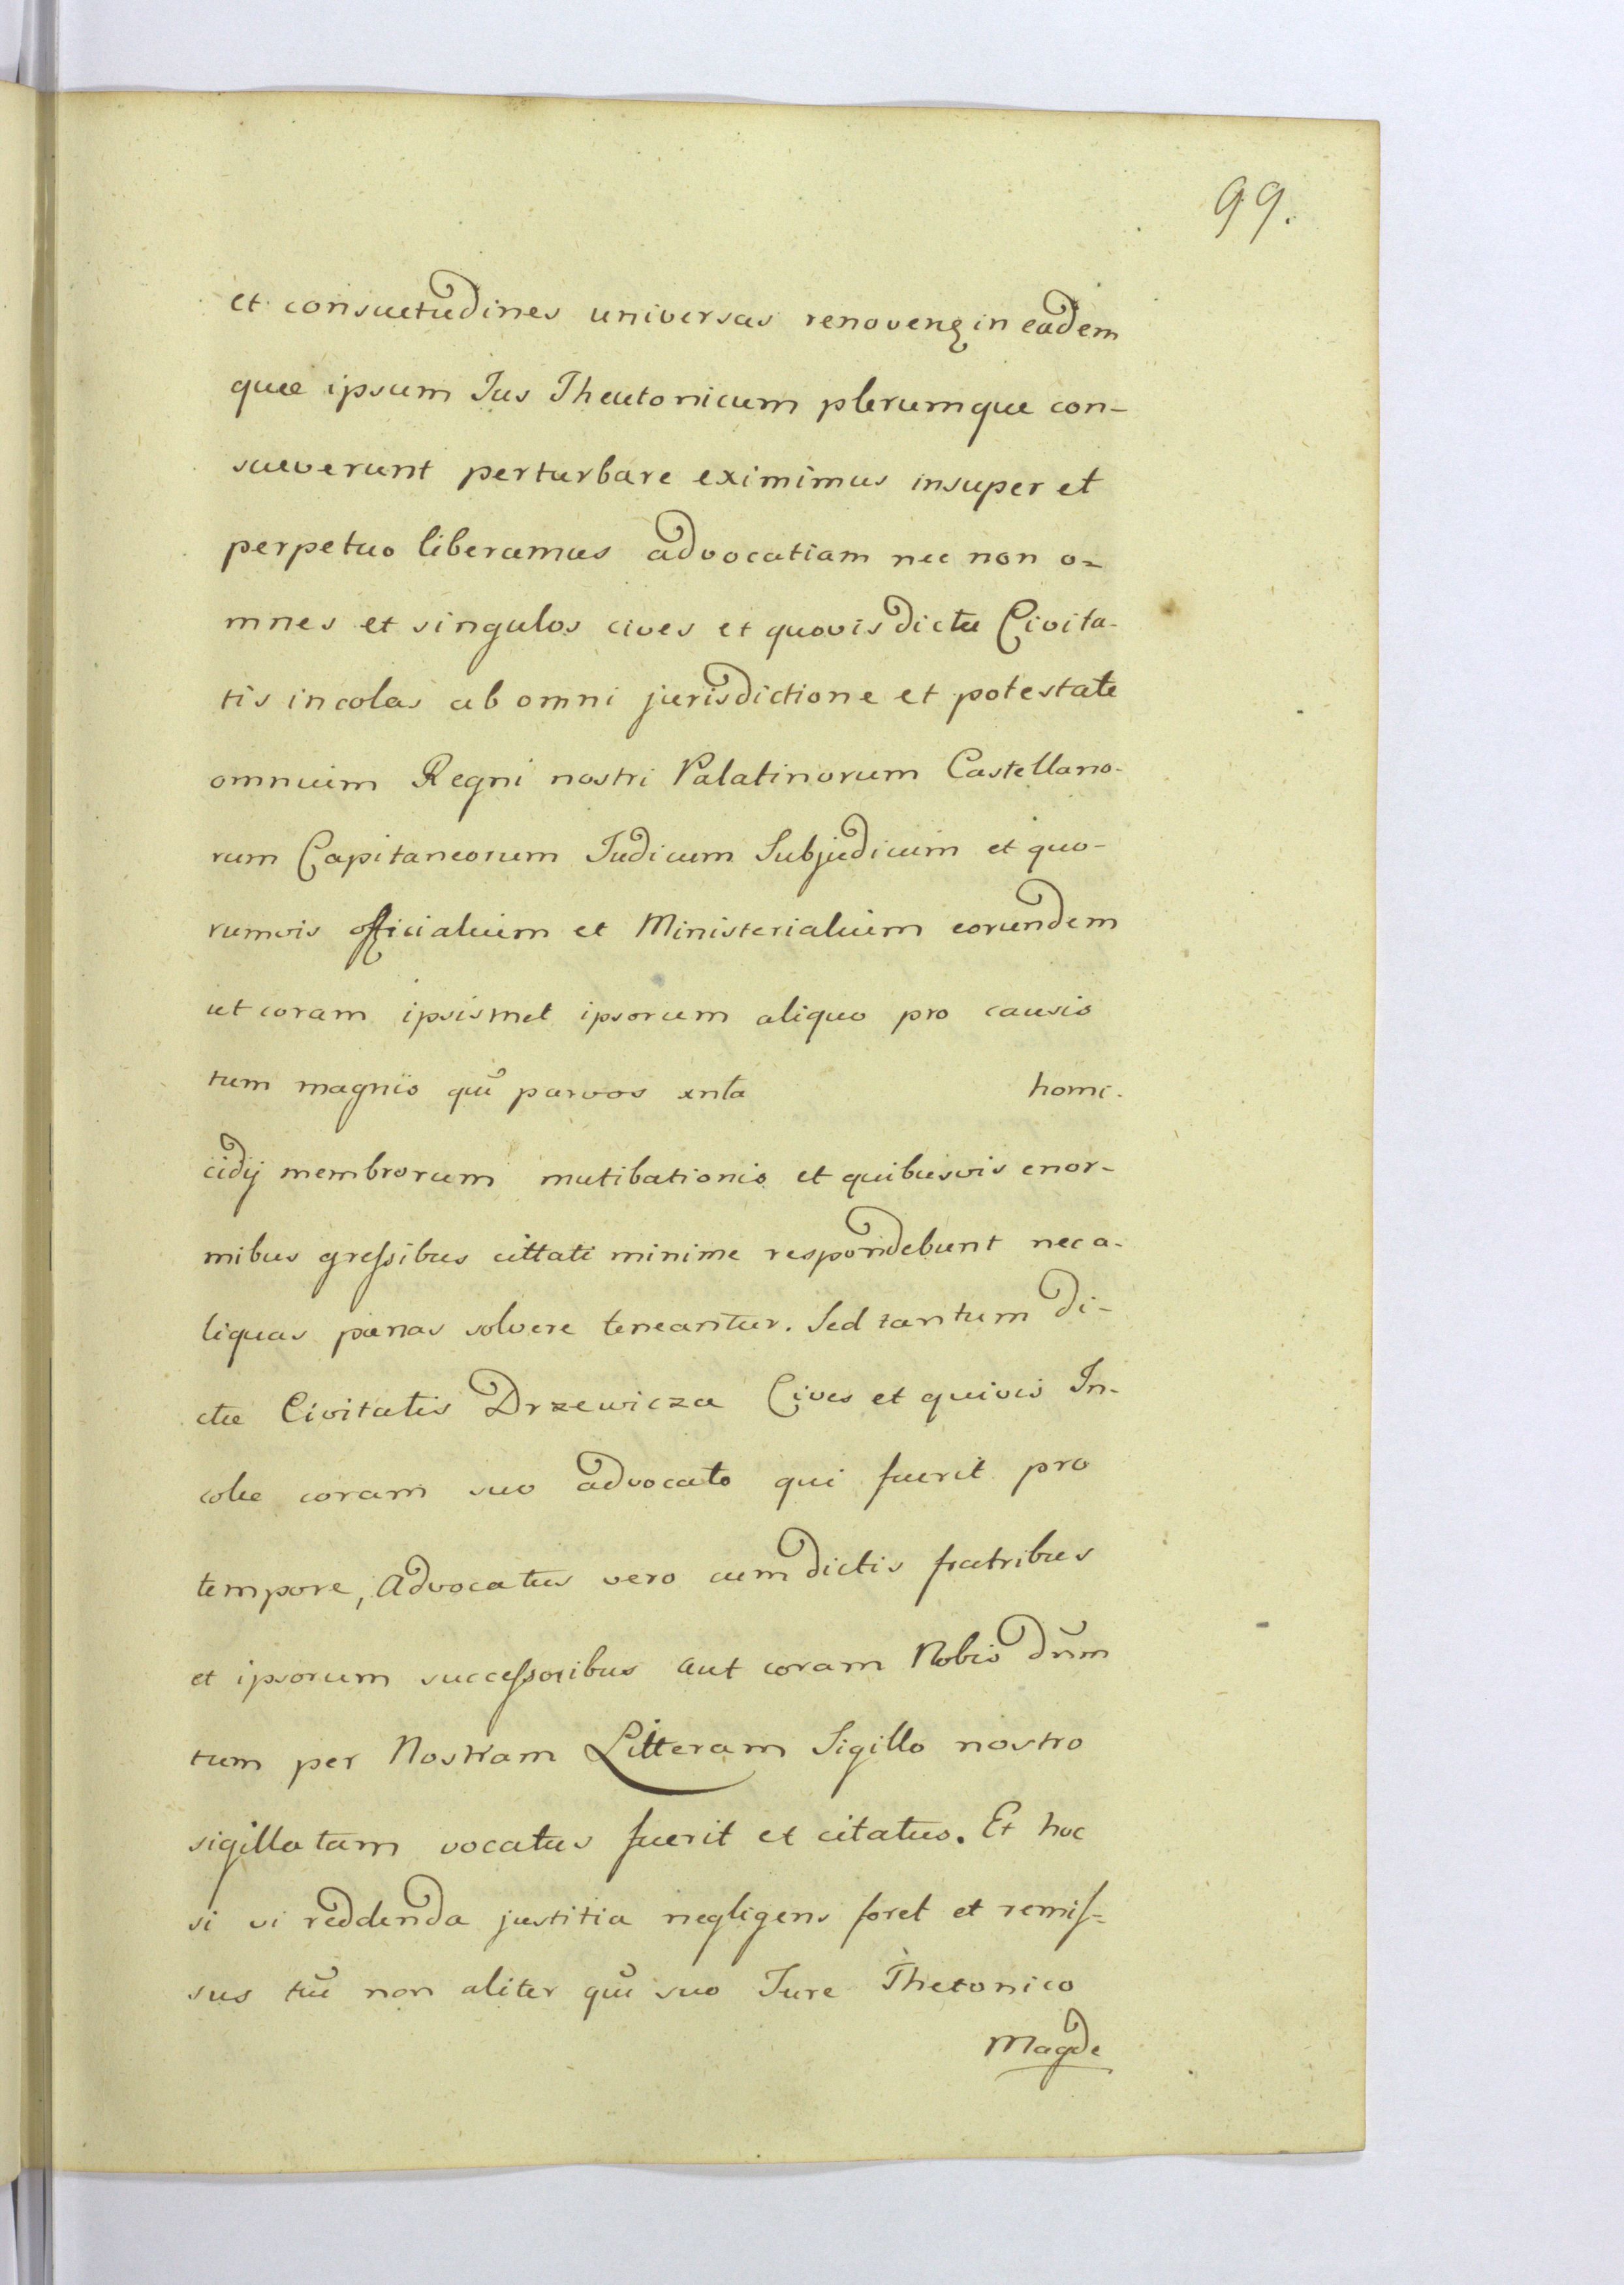 99.
et consuetudines universas renovenq in eadem
quæ ipsum Jus Theutonicum plerumque con-
sueverunt perturbare eximimus insuper et
perpetuo liberamus advocatiam nec non o=
mnes et singulos cives et quovis dictæ Civita-
tis incolas ab omni jurisdictione et potestate
omnium Regni nostri Palatinorum Castellano-
rum Capitaneorum Judicum Subjudicum et quo-
rumvis officialium et Ministerialium eorundem
ut coram ipsismet ipsorum aliquo pro causis
tum magnis qũ parvos xnta homi-
cidij membrorum mutibationis et quibusvis enor-
mibus greſsibus cittati minime respondebunt nec a-
liquas pænas solvere teneantur. Sed tantum di-
ctæ Civitatis Drzewicza Cives et quivis In-
colæ coram suo advocato qui fuerit pro
tempore, Advocatus vero cum dictis fratribus
et ipsorum succeſsoribus aut coram Nobis dum̃
tum per Nostram Litteram Sigillo nostro
sigillatam vocatus fuerit et citatus. Et hoc
si vi reddenda justitia negligens foret et remiſ=
sus tũ non aliter qũ suo Jure Thetonico
Magde